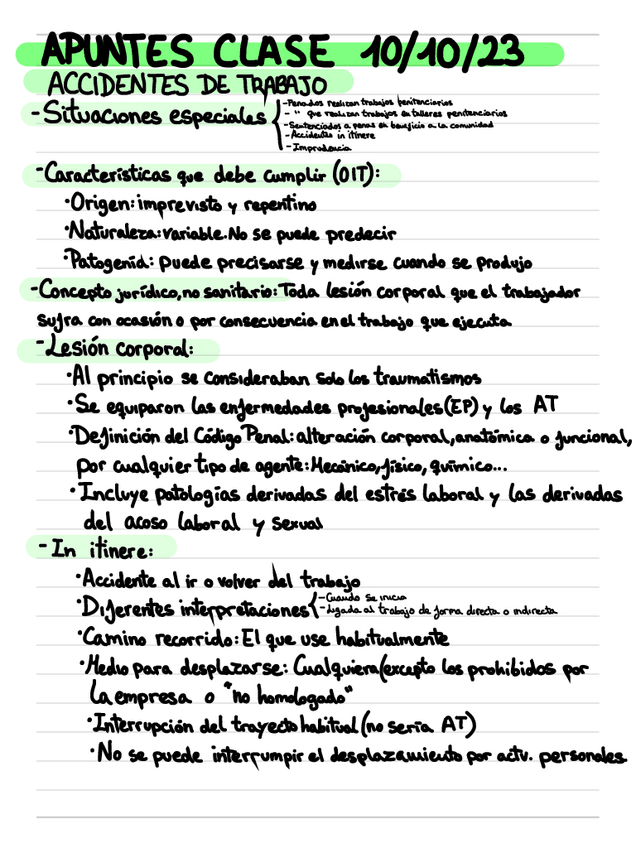 APUNTES CLASE 10/10/23
ACCIDENTES DE TRABAJO
-Situaciones especiales
-Penados realizan trabajos penitenciarios
- " que realizan trabajos en talleres penitenciarios
-Sentenciados a penas en beneficio a la comunidad
-Accidentes in itinere
-Imprudencia
-Características que debe cumplir (OIT):
·Origen: imprevisto y repentino
·Naturaleza: variable. No se puede predecir
·Patogenia: puede precisarse y medirse cuando se produjo
-Concepto jurídico, no sanitario: Toda lesión corporal que el trabajador
sufra con ocasión o por consecuencia en el trabajo que ejecuta.
-Lesión corporal:
·Al principio se consideraban solo los traumatismos
·Se equiparon las enfermedades profesionales (EP) y los AT
·Definición del Código Penal: alteración corporal, anatómica o funcional,
por cualquier tipo de agente: Mecánico, físico, químico...
·Incluye patologías derivadas del estrés laboral y las derivadas
del acoso laboral y sexual
-In itinere:
·Accidente al ir o volver del trabajo
·Diferentes interpretaciones
-Cuando se inicia
-Ligada al trabajo de forma directa o indirecta
·Camino recorrido: El que use habitualmente
·Medio para desplazarse: Cualquiera (excepto los prohibidos por
la empresa o "no homologado"
·Interrupción del trayecto habitual (no sería AT)
·No se puede interrumpir el desplazamiento por actv. personales.